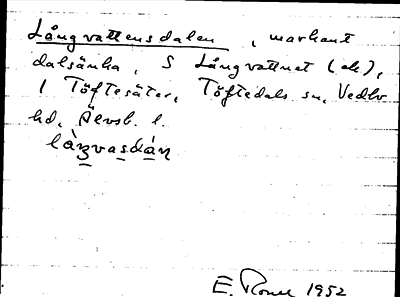 Långvattensdalen, markant
dalsänka, S Långvattnet (ek),
i Töftesäter, Töftedals sn, Vedbo
hd. Älvsb. l.
E. Rome 1952